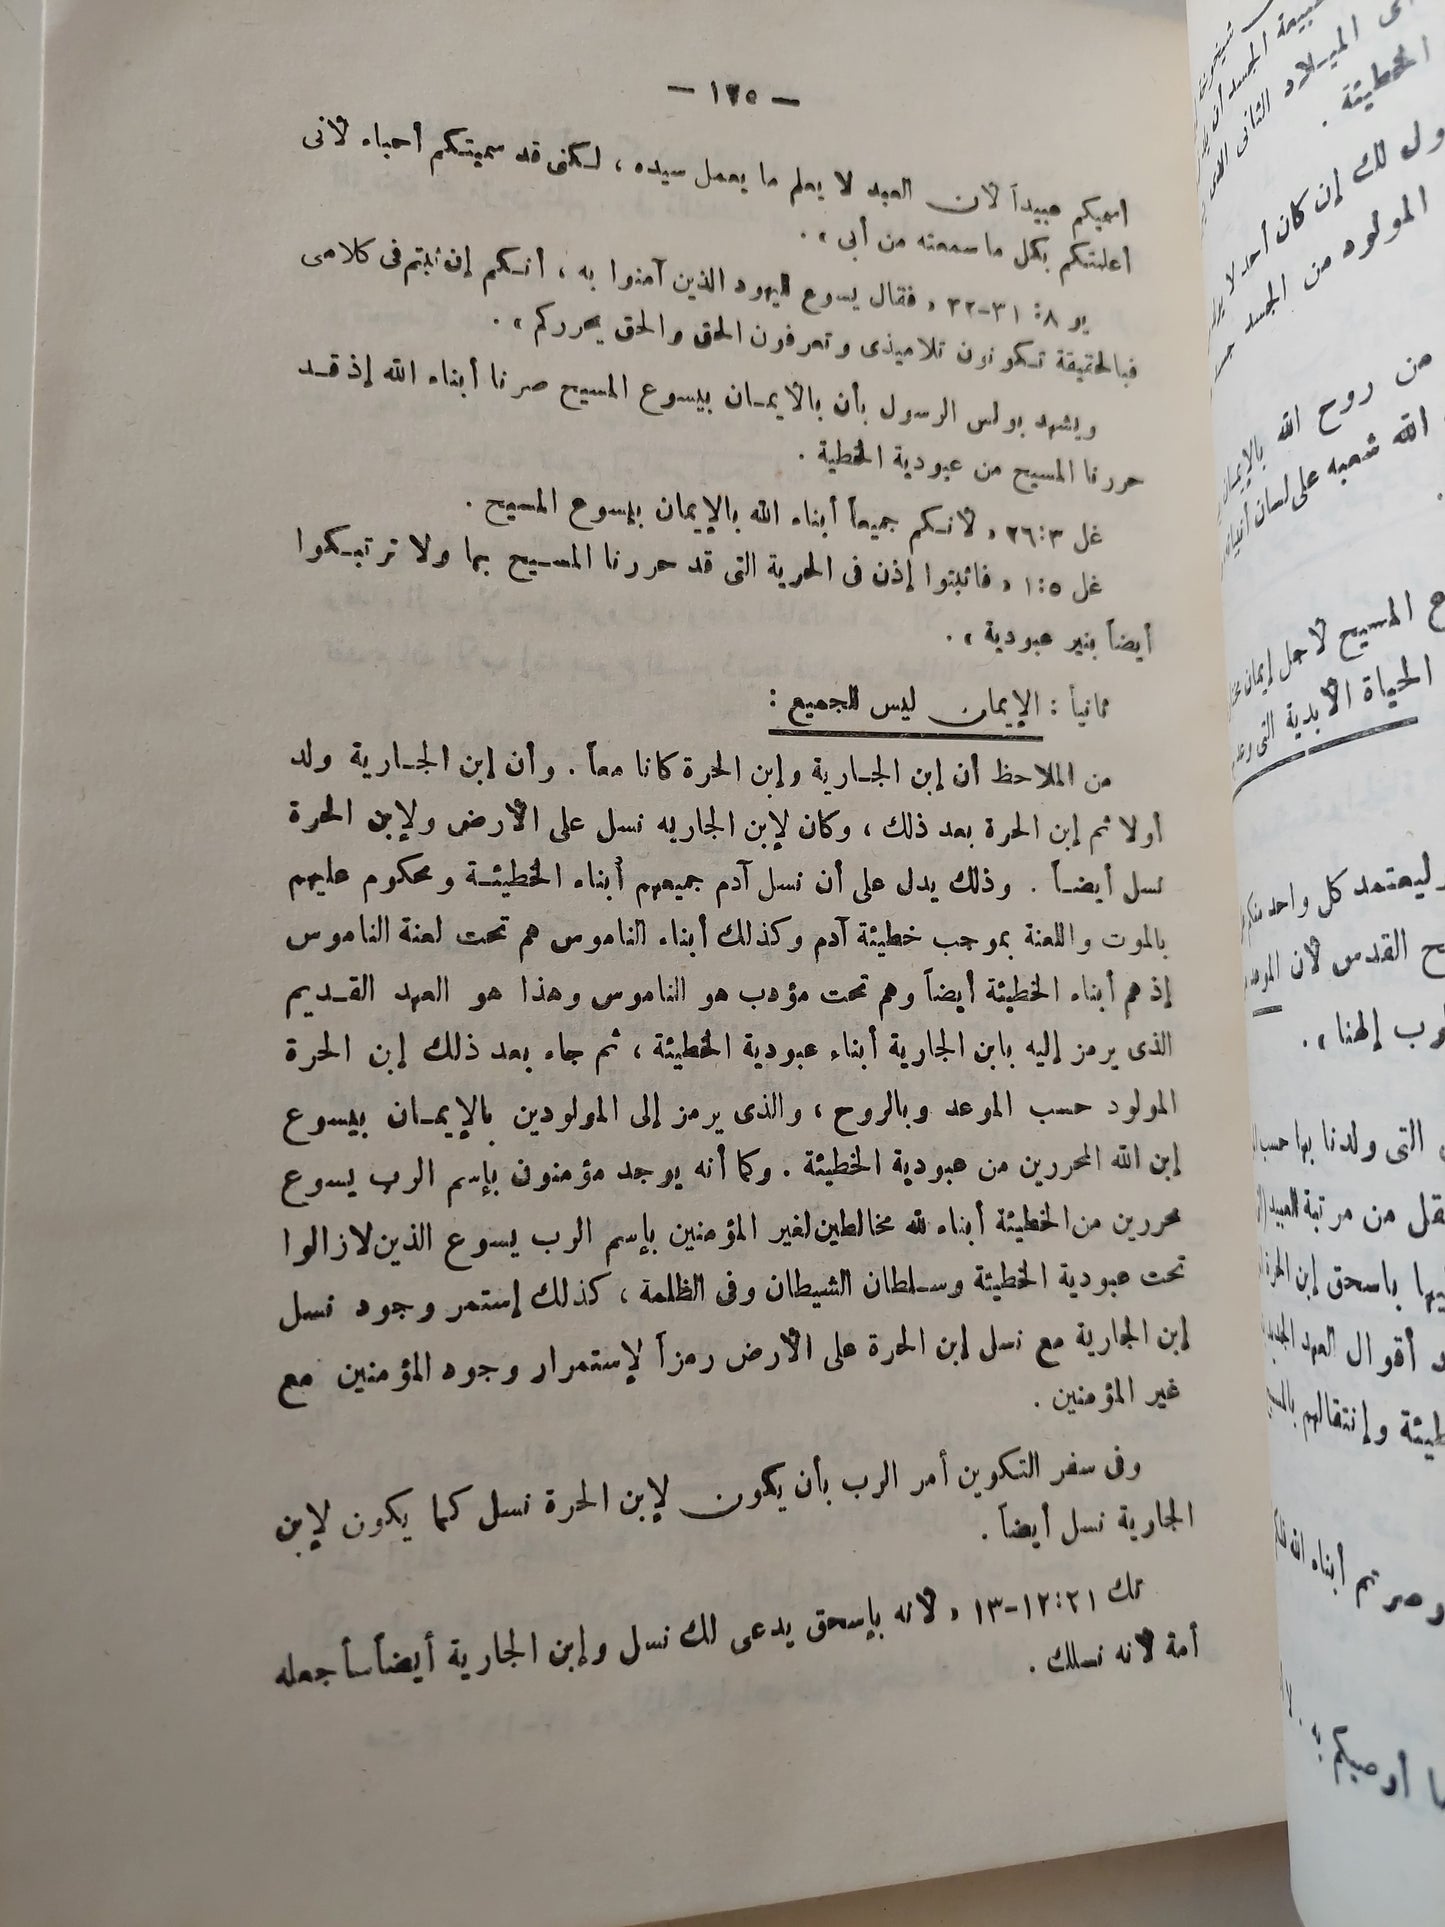 — ١٢٥ —
أسميكم عبيداً لأن العبد لا يعلم ما يعمل سيده ، لـكنى قد سميتـكم أحباء لأنى
أعلمتكم بكل ما سمعته من أبى » .
يو ٨: ٣١-٣٢ « فقال يسوع لليهود الذين آمنوا به ، أنـكم إن ثبتم فى كلامى
فبالحقيقة تـكونون تلاميذى وتعرفون الحق والحق يحرركم » .
ويشهد بولس الرسول بأن بالايمـان بيسوع المسيح صرنا أبناء الله إذ قـد
حررنا المسيح من عبودية الخطية .
غل ٣:٢٦ « لأنـكم جميعاً أبناء الله بالإيمان بيسوع المسيح .
غل ٥:١ « فاثبتوا إذن فى الحرية التى قد حررنا المسـيح بها ولا ترتبـكوا
أيضاً بنير عبودية » .
ثانياً : الإيمان ليس للجميع :
من الملاحظ أن إبن الجـارية وإبن الحرة كانا معاً . وأن إبن الجـارية ولد
أولا ثم إبن الحرة بعد ذلك ، وكان لإبن الجاريه نسل على الأرض ولإبن الحرة
نسل أيضـاً . وذلك يدل على أن نسل آدم جميعهم أبناء الخطيئـة ومحكوم عليهم
بالموت واللعنة بموجب خطيئة آدم وكذلك أبناء الناموس هم تحت لعنة الناموس
إذ هم أبناء الخطيئة أيضاً وهم تحت مؤدب هو الناموس وهذا هو العهد القـديم
الذى يرمز إليه بابن الجارية أبناء عبودية الخطيئة ، ثم جاء بعد ذلك إبن الحرة
المولود حسب الموعد وبالروح ، والذى يرمز إلى المولودين بالإيمـان بيسوع
إبن الله المحررين من عبودية الخطيئة . وكما أنه يوجد مؤمنون بإسم الرب يسوع
محررين من الخطيئة أبناء لله مخالطين لغير المؤمنين بإسم الرب يسوع الذين لازالوا
تحت عبودية الخطيئة وسـلطان الشيطان وفى الظلمة ، كذلك إستمر وجود نسل
إبن الجارية مع نسل إبن الحرة على الأرض رمزاً لإستمرار وجود المؤمنين مع
غير المؤمنين .
وفى سفر التكوين أمر الرب بأن يكون لإبن الحرة نسل كما يكون لإبن
الجارية نسل أيضاً .
تك ٢١:١٢-١٣ « لأنه بإسحق يدعى لك نسل وإبن الجارية أيضاً سأجعله
أمة لأنه نسلك .
الميـلاد الثانى
الخطيئة .
لك إن كان أحد لا
المولود من الجسد
من روح الله بالإيمان
الله شعبه على لسان
المسيح لأجل إيمان
الحياة الأبدية التى
وليعتمد كل واحد منكم
القدس لأن
إلهنا » .
التى ولدنا بها حسب
من مرتبة العبيد
باسحق إبن الحرة
أقوال العهد الجديد
وإنتقالهم
أبناء الله
أوصيكم به .